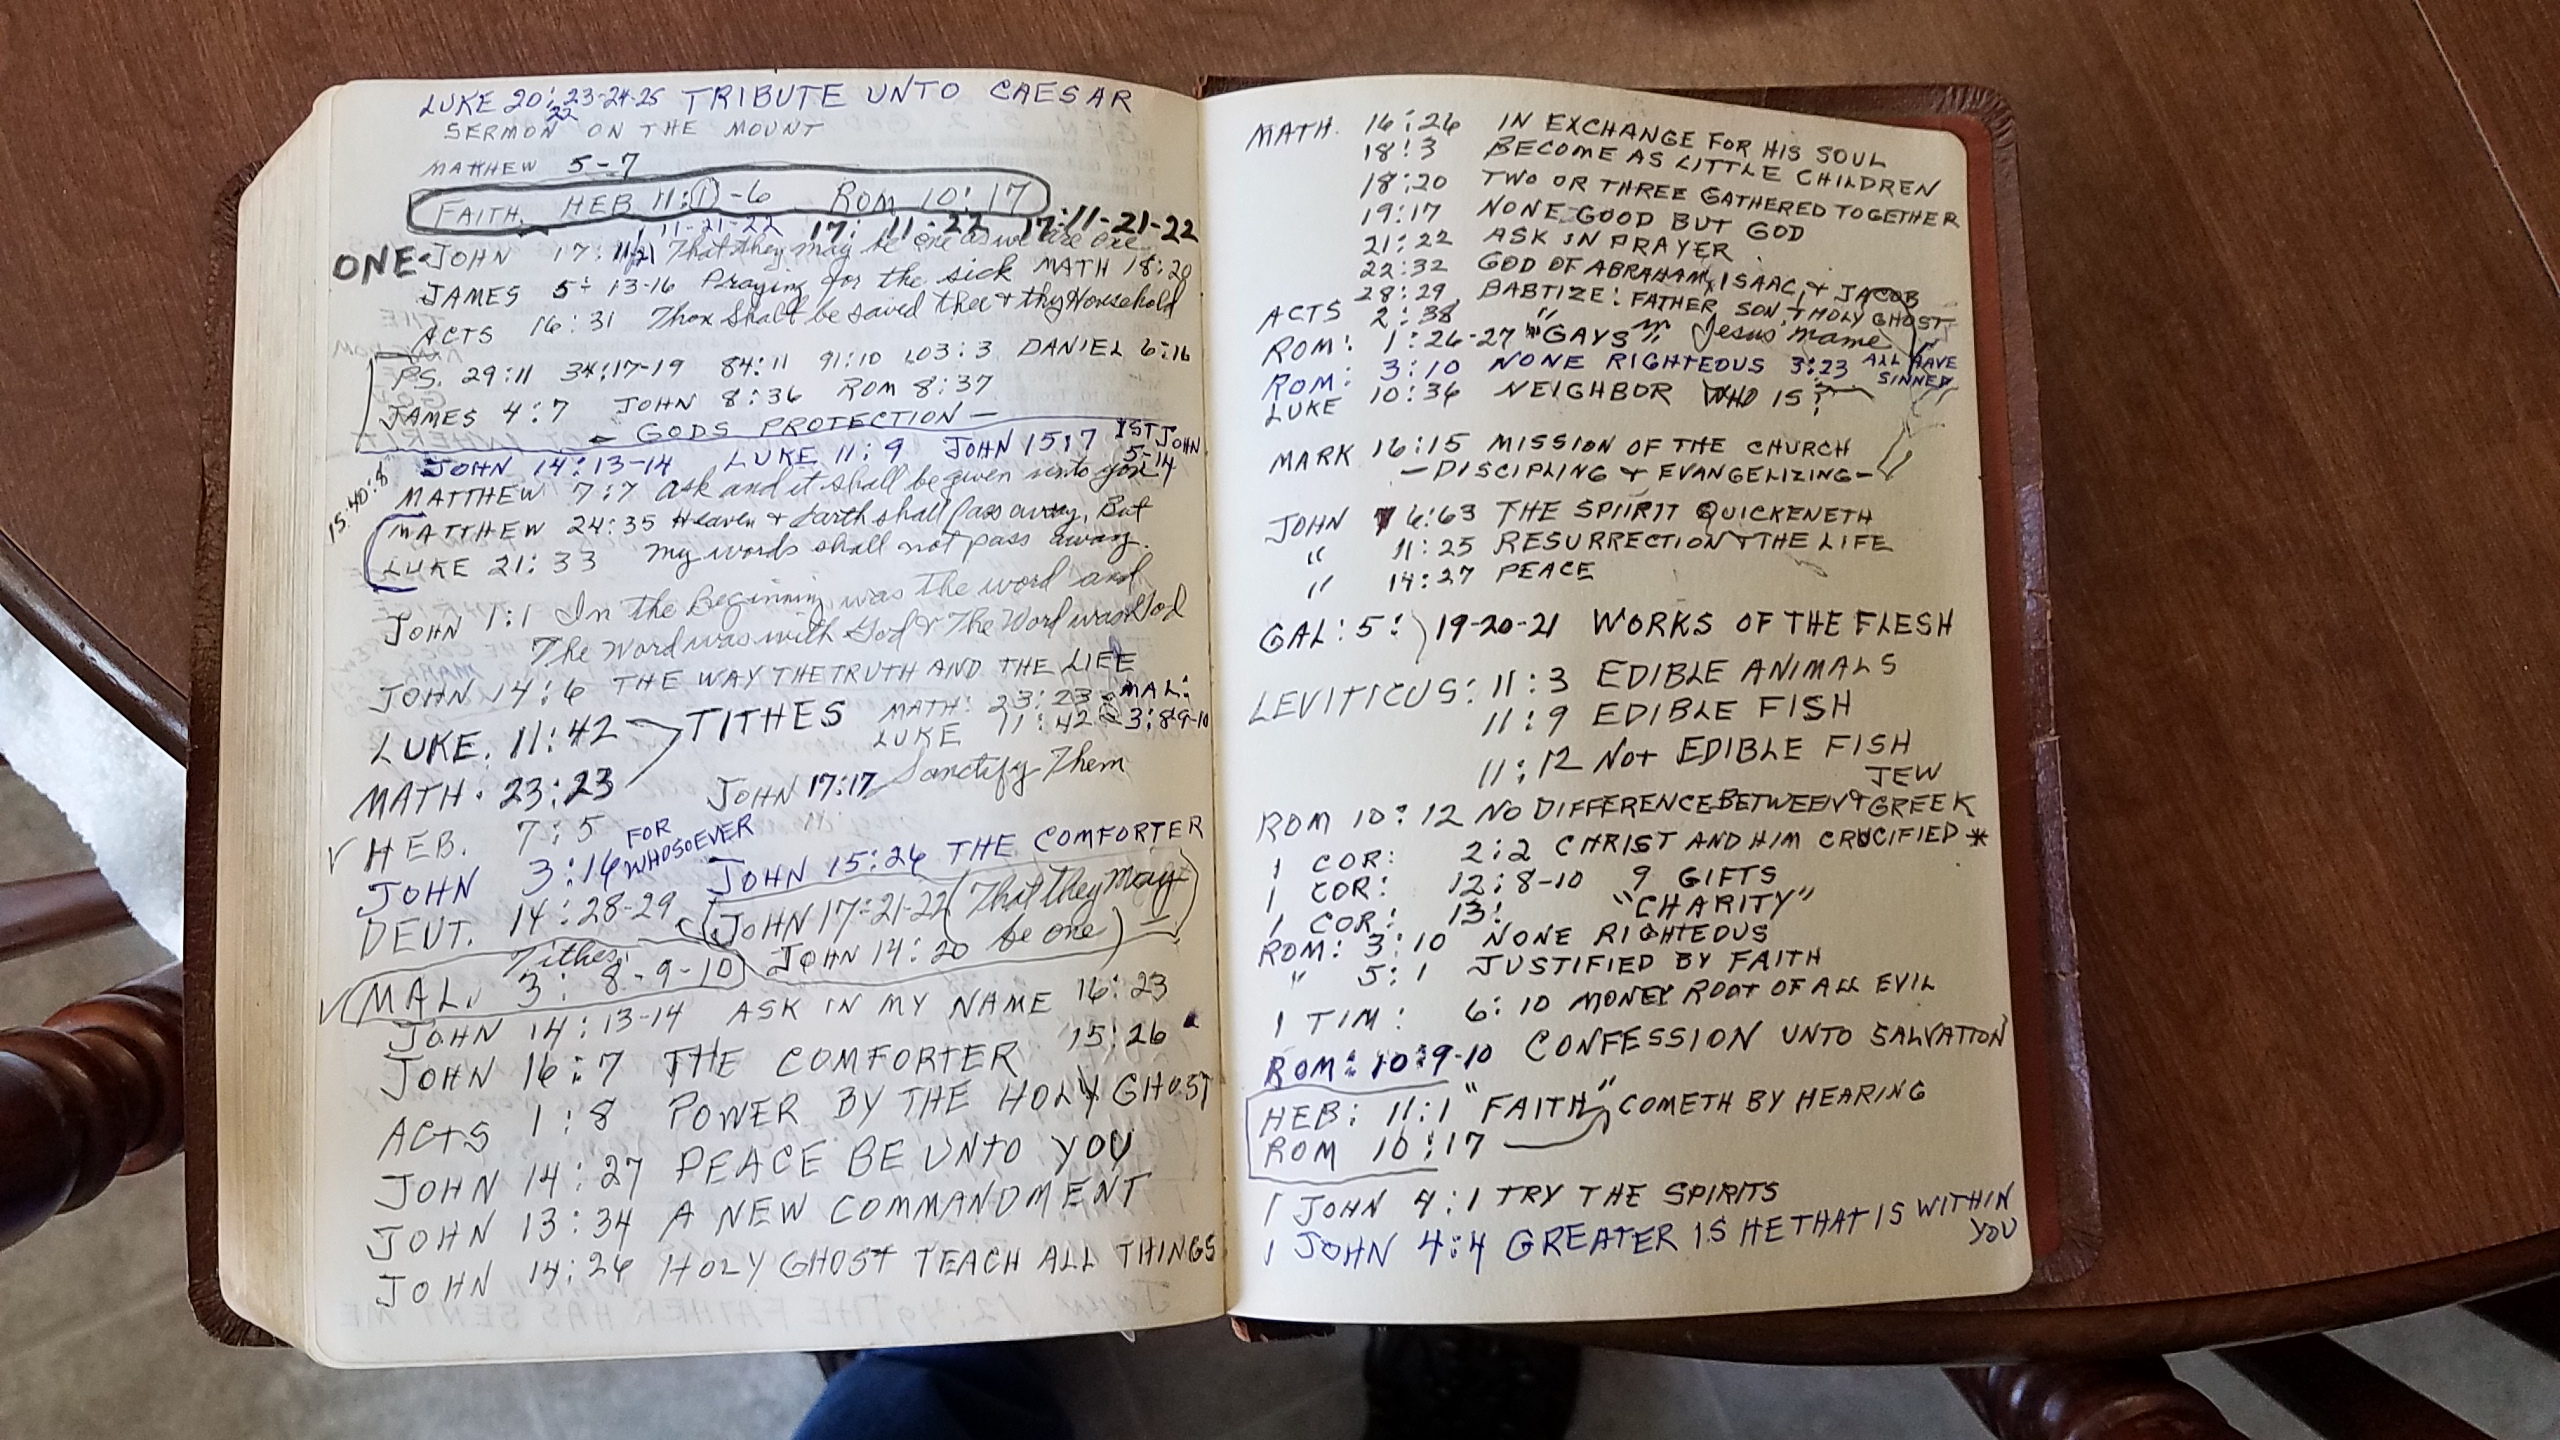 LUKE 20:23-24-25 TRIBUTE UNTO CAESAR
22
SERMON ON THE MOUNT
MATTHEW 5-7
FAITH. HEB 11:1-6 ROM 10:17
11-21-22 17: 11-22 17:11-21-22
ONE JOHN 17:11,21 That they may be one as we are one
JAMES 5:13-16 Praying for the sick MATH 18:20
ACTS 16:31 Thou shalt be saved thee & thy Household
PS. 29:11 34:17-19 84:11 91:10 103:3 DANIEL 6:16
JAMES 4:7 JOHN 8:36 ROM 8:37
GODS PROTECTION —
JOHN 14:13-14 LUKE 11:9 JOHN 15:7 1ST JOHN
5-14
15:40:8
MATTHEW 7:7 Ask and it shall be given unto you
MATTHEW 24:35 Heaven & Earth shall Pass away, But
LUKE 21:33 my words shall not pass away.
JOHN 1:1 In the Beginning was the word and
The Word was with God & The Word was God
JOHN 14:6 THE WAY THE TRUTH AND THE LIFE
LUKE. 11:42 TITHES MATH: 23:23 MAL:
LUKE 11:42 3:8-9-10
MATH. 23:23 JOHN 17:17 Sanctify Them
HEB. 7:5
JOHN 3:16 FOR WHOSOEVER JOHN 15:26 THE COMFORTER
DEUT. 14:28-29 (JOHN 17:21-22 (That they may
Tithes JOHN 14:20 be one)
MAL. 3:8-9-10
JOHN 14:13-14 ASK IN MY NAME 16:23
JOHN 16:7 THE COMFORTER 15:26
ACTS 1:8 POWER BY THE HOLY GHOST
JOHN 14:27 PEACE BE UNTO YOU
JOHN 13:34 A NEW COMMANDMENT
JOHN 14:26 HOLY GHOST TEACH ALL THINGS
MATH. 16:26 IN EXCHANGE FOR HIS SOUL
18:3 BECOME AS LITTLE CHILDREN
18:20 TWO OR THREE GATHERED TOGETHER
19:17 NONE GOOD BUT GOD
21:22 ASK IN PRAYER
22:32 GOD OF ABRAHAM, ISAAC, & JACOB
28:29 BABTIZE: FATHER, SON, & HOLY GHOST
ACTS 2:38 " " Jesus' name
ROM: 1:26-27 "GAYS"
ROM: 3:10 NONE RIGHTEOUS 3:23 ALL HAVE
SINNED
LUKE 10:36 NEIGHBOR WHO IS?
MARK 16:15 MISSION OF THE CHURCH
— DISCIPLING & EVANGELIZING —
JOHN 6:63 THE SPIIRIT QUICKENETH
" 11:25 RESURRECTION & THE LIFE
" 14:27 PEACE
GAL: 5:) 19-20-21 WORKS OF THE FLESH
LEVITICUS: 11:3 EDIBLE ANIMALS
11:9 EDIBLE FISH
11:12 Not EDIBLE FISH
JEW
ROM 10:12 NO DIFFERENCE BETWEEN & GREEK
1 COR: 2:2 CHRIST AND HIM CRUCIFIED *
1 COR: 12:8-10 9 GIFTS
1 COR: 13: "CHARITY"
ROM: 3:10 NONE RIGHTEOUS
" 5:1 JUSTIFIED BY FAITH
1 TIM: 6:10 MONEY ROOT OF ALL EVIL
ROM: 10:9-10 CONFESSION UNTO SALVATION
HEB: 11:1 "FAITH" COMETH BY HEARING
ROM 10:17
1 JOHN 4:1 TRY THE SPIRITS
1 JOHN 4:4 GREATER IS HE THAT IS WITHIN
YOU